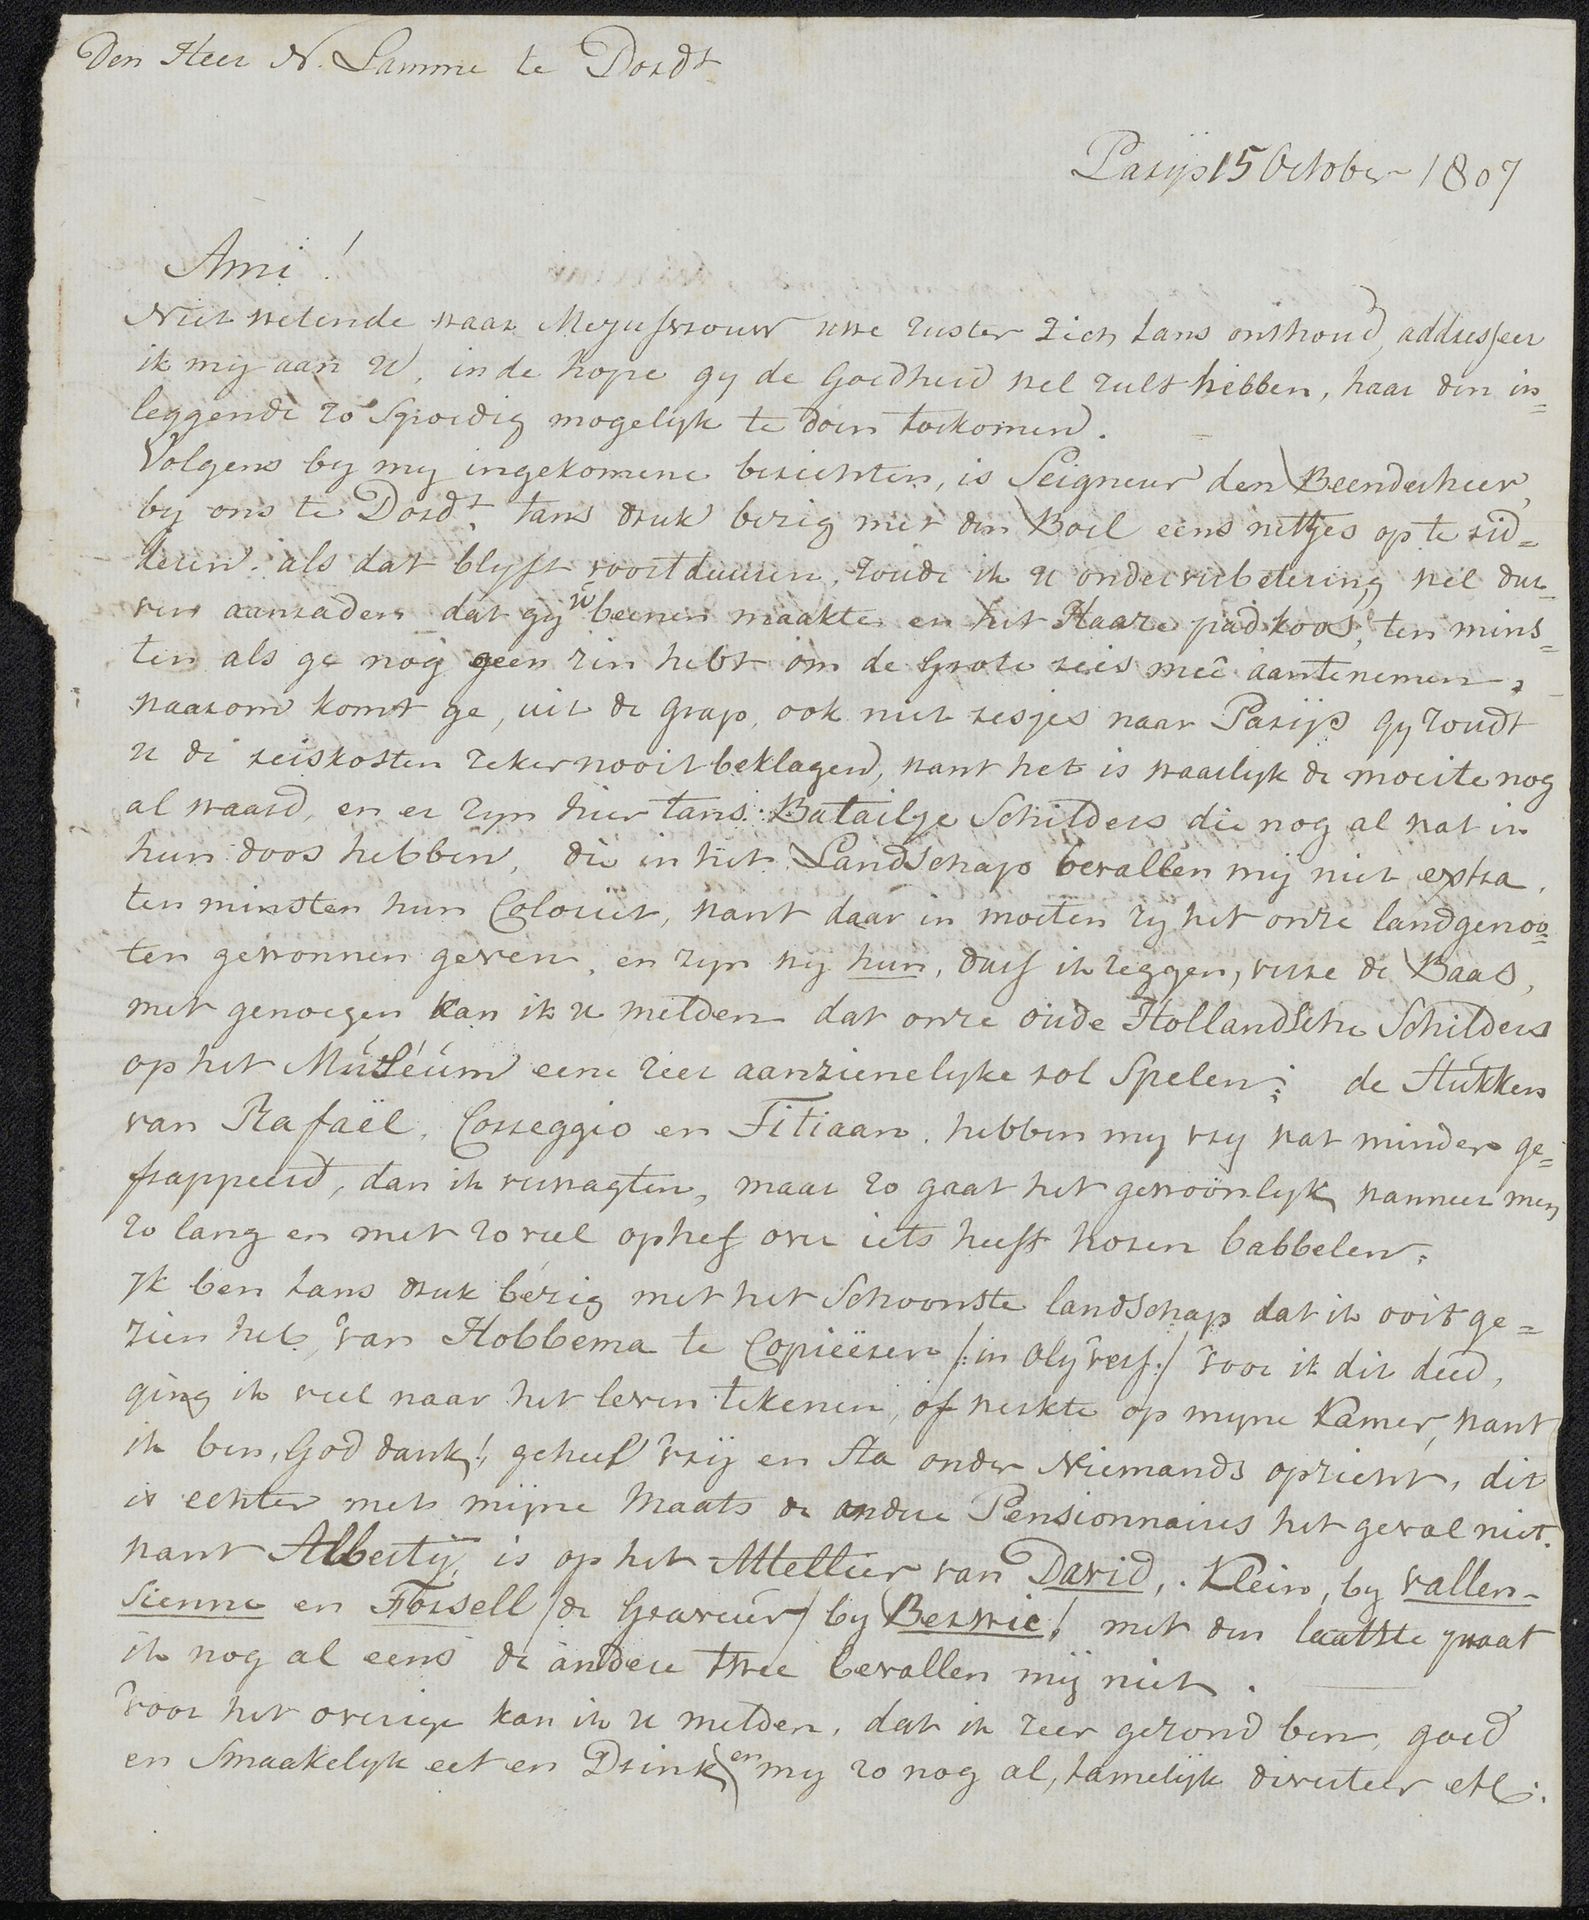 Den Heer N. Lamme te Dordt
Parijs 15 October 1807
Ami!
Niet wetende waar Mejufvrouw uwe zuster zich tans onthoud, addresseer
ik mij aan U, in de hope gij de Goedheid wel zult hebben, haar den in=
leggende zo Spoedig mogelyk te doen toekomen.
Volgens by my ingekomene berichten, is Seigneur den Beenderheer,
by ons te Dordt, tans druk bezig met den Boel eens netjes op te rid=
deren. als dat blyft voortduuren, zoude ik u onder verbetering wel dur=
ven aanraden dat gij uw beenen maakte en het Haaze pad koos, ten mins=
ten als ge nog geen zin hebt om de Grote reis meê aantenemen,
waarom komt ge, uit de grap, ook niet resjes naar Parijs gy zoudt
u de reiskosten zeker nooit beklagen, want het is waarlyk de moeite nog
al waard, en er zyn hier tans Batailje Schilders die nog al wat in
hun doos hebben, die in het Landschap bevallen mij niet extra,
ten minsten hun Coloriet, want daar in moeten zy het onze landgenoo=
ten gewonnen geven, en zyn wij hun, durf ik zeggen, verre de Baas,
met genoegen kan ik u melden dat onze oude Hollandsche Schilders
op het Muséum eene zeer aanzienelyke rol Spelen; de Stukken
van Rafaël, Correggio en Titiaan, hebben my vry wat minder ge=
frappeerd, dan ik verwagten, maar zo gaat het gewoonlyk wanneer men
zo lang en met zo veel ophef over iets heeft horen babbelen.
Ik ben tans druk bezig met het Schoonste landschap dat ik ooit ge=
zien heb, van Hobbema te Copieëren /:in olyverf:/ voor ik dit deed,
ging ik veel naar het leven tekenen, of werkte op myne Kamer, want
ik ben, God dank!, geheel vrij en Sta onder Niemands opzicht, dit
is echter met mijne Maats de andere Pensionnaires het geval niet.
want Alberty, is op het Attellier van David, Klein, by vallen-
sienne en Forsell /de Graveur/ by Berwic! met den laatste praat
ik nog al eens de andere twee bevallen mij niet.
voor het overige kan ik u melden, dat ik zeer gezond ben, goed
en Smaakelyk eet en Drink, en my zo nog al, tamelijk diverteer etc.